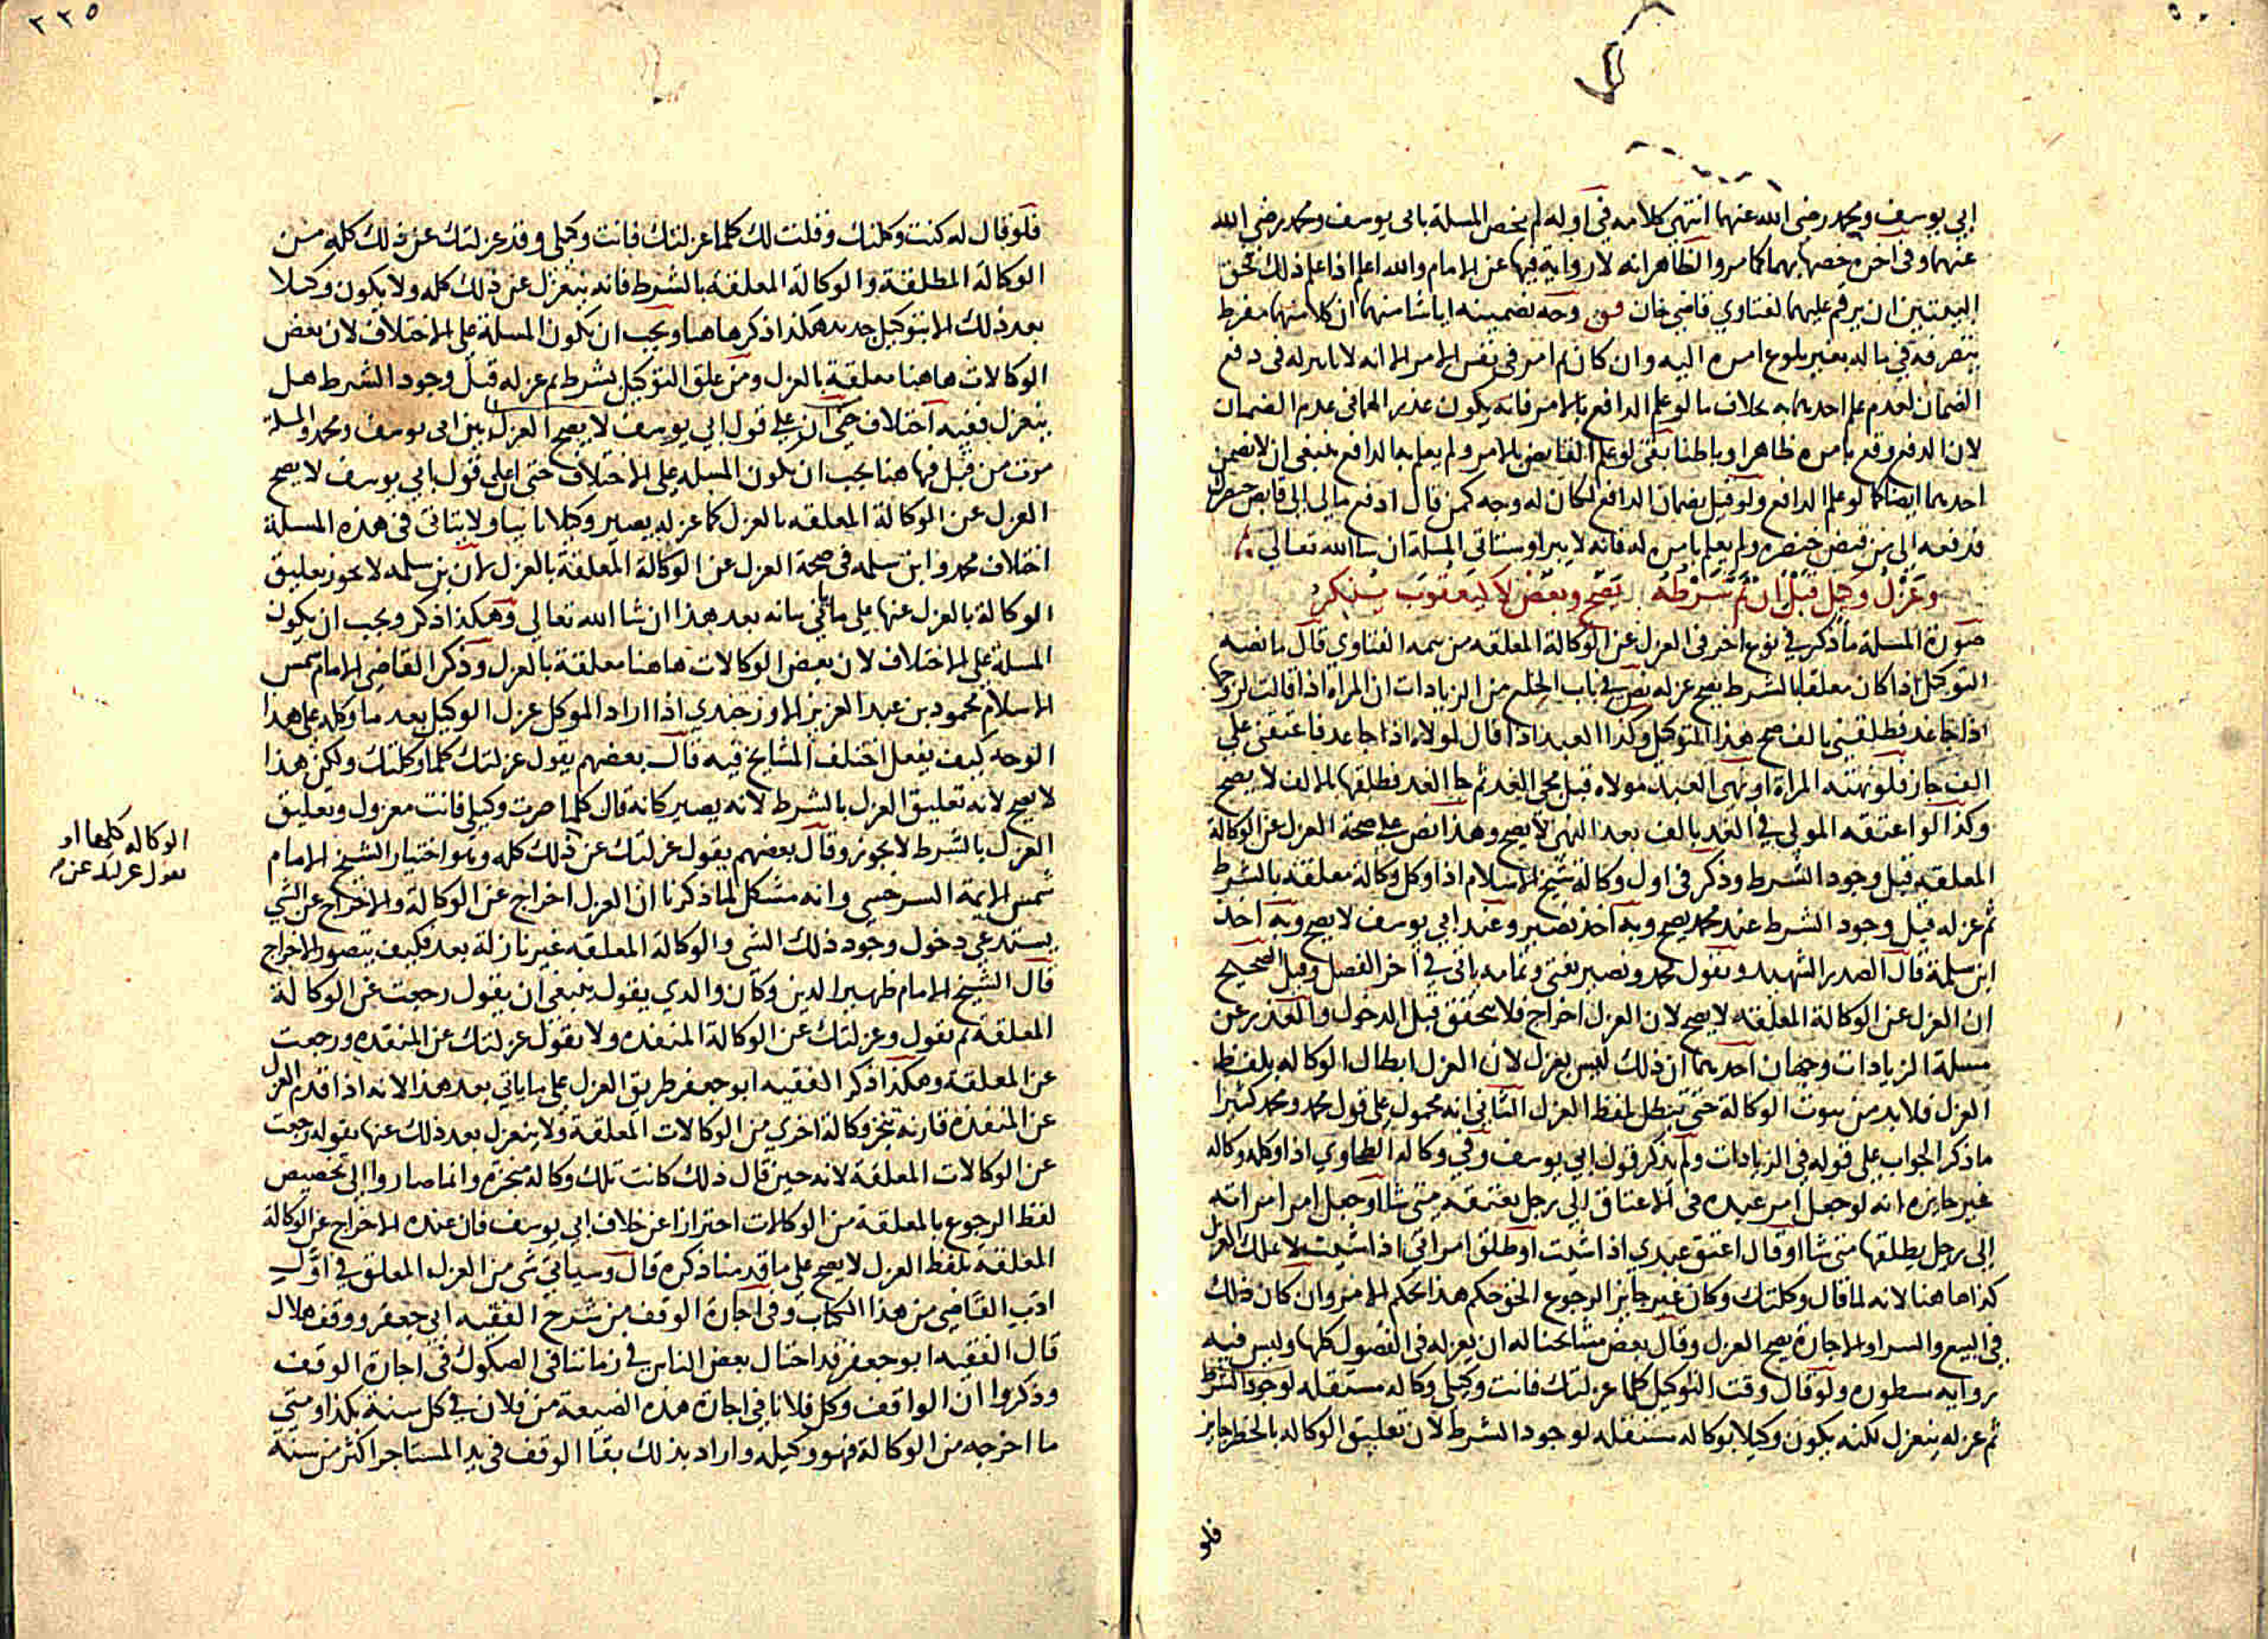 ابي يوسف ومحمد رضي الله عنهما انتهى كلامه في اوله لم يخص المسلة بابي يوسف ومحمد رضي الله
عنهما وفي اخره خصها بهما كما مر والظاهر انه لا رواية فيها عن الامام والله اعلم اذا علم ذلك فحق
البيتين ان يرقم عليهما لفتاوي قاضي خان وجه تضمينه ايا شا منهما ان كلا منهما مفرط
بتصرفه في ماله بغير بلوغ امره اليه وان كان ثم امر في نفس الامر الا انه لا تاثير له في دفع
الضمان لعدم علم احدهما به بخلاف ما لو علم الدافع بالامر فانه يكون عذرا لهما في عدم الضمان
لان الدفع وقع بامره ظاهرا وباطنا بقى لو علم القابض بالامر ولم يعلم به الدافع ينبغي ان لا يضمن
احدهما ايضا كما لو علم الدافع ولو قيل بضمان الدافع لكان له وجه كمن قال ادفع مالي الى قابض خنصرك
فدفعه الى من قبض خنصره ولم يعلم بامره له فانه لا يبرا وستاتي المسلة ان شا الله تعالى
وعزل وكيل قبل ان تم شرطه يصح وبعض لا ليعقوب ينكر
صورة المسلة ما ذكر في نوع اخر في العزل عن الوكالة المعلقه من تتمه الفتاوي قال ما نصه
التوكيل اذا كان معلقا بالشرط يصح عزله نص في باب الخلع من الزيادات ان المراة اذا قالت لزوجها
اذا جا غد فطلقني بالف صح هذا التوكيل وكذا العبد اذا قال لمولاه اذا جا غد فاعتقني على
الف جاز فلو نهته المراة او نهى العبد مولاه قبل مجي الغد ثم جا الغد فطلقها بالالف لا يصح
وكذا لو اعتقه المولى في الغد بالف بعد النهي لا يصح وهذا نص على صحة العزل عن الوكالة
المعلقه قبل وجود الشرط وذكر في اول وكالة شيخ الاسلام اذا وكل وكالة معلقه بالشرط
ثم عزله قبل وجود الشرط عند محمد يصح وبه اخذ نصير وعند ابي يوسف لا يصح وبه اخذ
ابن سلمة قال الصدر الشهيد وبقول محمد ونصير نفتي وتمامه ياتي في اخر الفصل وقيل الصحيح
ان العزل عن الوكالة المعلقه لا يصح لان العزل اخراج فلا يتحقق قبل الدخول والعذر عن
مسلة الزيادات وجهان احدهما ان ذلك ليس بعزل لان العزل ابطال الوكاله بلفظ
العزل فلا بد من ثبوت الوكالة حتى تبطل بلفظ العزل الثاني انه محمول على قول محمد ومحمد كثيرا
ما ذكر الجواب على قوله في الزيادات ولم يذكر قول ابي يوسف وفي وكاله الطحاوي اذا وكله وكاله
غير جايزه انه لو جعل امر عبده في الاعتاق الى رجل يعتقه متى شا او جعل امر امراته
الى رجل يطلقها متى شا او قال اعتق عبدي اذا شيت او طلق امراتي اذا شيت لا يملك العزل
كذا هاهنا لانه لما قال وكلتك وكان غير جايز الرجوع الحق حكم هذا بحكم الامر وان كان ذلك
في البيع والشرا والاجارة يصح العزل وقال بعض مشايخنا له ان يعزله في الفصول كلها وليس فيه
روايه مسطوره ولو قال وقت التوكيل كلما عزلتك فانت وكيلي وكاله مستقبله لوجود الشرط
ثم عزله ينعزل لكنه يكون وكيلا بوكاله مستقبله لوجود الشرط لان تعليق الوكاله بالخطر جايز
فلو
٢٣٥
فلو قال له كنت وكلتك وقلت لك كلما عزلتك فانت وكيلي وقد عزلتك عن ذلك كله من
الوكالة المطلقة والوكالة المعلقة بالشرط فانه ينعزل عن ذلك كله ولا يكون وكيلا
بعد ذلك الا بتوكيل جديد هكذا ذكر هاهنا ويجب ان يكون المسلة على الاختلاف لان بعض
الوكالات هاهنا معلقة بالعزل ومن علق التوكيل بشرط ثم عزله قبل وجود الشرط هل
ينعزل ففيه اختلاف حتى ان على قول ابي يوسف لا يصح العزل بين ابي يوسف ومحمد والمسلة
مرت من قبل فهاهنا يجب ان يكون المسله على الاختلاف حتى ان على قول ابي يوسف لا يصح
العزل عن الوكالة المعلقه بالعزل كما عزله يصير وكيلا ثانيا ولا يتاتى في هذه المسلة
اختلاف محمد وابن سلمه في صحة العزل عن الوكالة المعلقة بالعزل لان بن سلمه لا يجوز تعليق
الوكالة بالعزل عنها على ما ياتي بيانه بعد هذا ان شا الله تعالى وهكذا ذكر ويجب ان يكون
المسلة على الاختلاف لان بعض الوكالات هاهنا معلقة بالعزل وذكر القاضي الامام شمس
الاسلام محمود بن عبد العزيز الاوزجندي اذا اراد الموكل عزل الوكيل بعد ما وكله على هذا
الوجه كيف يفعل اختلف المشايخ فيه قال بعضهم يقول عزلتك كلما وكلتك ولكن هذا
لا يصح لانه تعليق العزل بالشرط لانه يصير كانه قال كلما صرت وكيلي فانت معزول وتعليق
العزل بالشرط لا يجوز وقال بعضهم يقول عزلتك عن ذلك كله وهو اختيار الشيخ الامام
شمس الايمة السرخسي وانه مشكل لما ذكرنا ان العزل اخراج عن الوكالة والاخراج عن الشي
يستدعي دخول وجود ذلك الشي والوكالة المعلقه غير نازلة بعد فكيف يتصور الاخراج
قال الشيخ الامام ظهير الدين وكان والدي يقول ينبغي ان يقول رجعت عن الوكالة
المعلقة ثم يقول وعزلتك عن الوكالة المنفده ولا يقول عزلتك عن المنفده ورجعت
عن المعلقة وهكذا ذكر الفقيه ابو جعفر طريق العزل على ما ياتي بعد هذا الا انه اذا قدم العزل
عن المنفذة قارنه تنجز وكالة اخرى من الوكالات المعلقة ولا ينعزل بعد ذلك عنها بقوله رجعت
عن الوكالات المعلقة لانه حين قال ذلك كانت تلك وكالة منجزه وانما صاروا الى تخصيص
لفظ الرجوع بالمعلقة من الوكالات احترازا عن خلاف ابي يوسف فان عنده الاخراج عن الوكالة
المعلقة بلفظ العزل لا يصح على ما قدمنا ذكره قال وسياتي شي من العزل المعلق في اول
ادب القاضي من هذا الكتاب وفي اجارة الوقف من شرح الفقيه ابي جعفر ووقف هلال
قال الفقيه ابو جعفر قد احتال بعض الناس في زماننا في الصكوك في اجارة الوقف
وذكروا ان الواقف وكل فلانا في اجارة هذه الضيعة من فلان في كل سنة بكذا ومتى
ما اخرجه من الوكالة فهو وكيله واراد بذلك بقا الوقف في يد المستاجر اكثر من سنة
الوكاله كلها او
يقول عزلتك عن